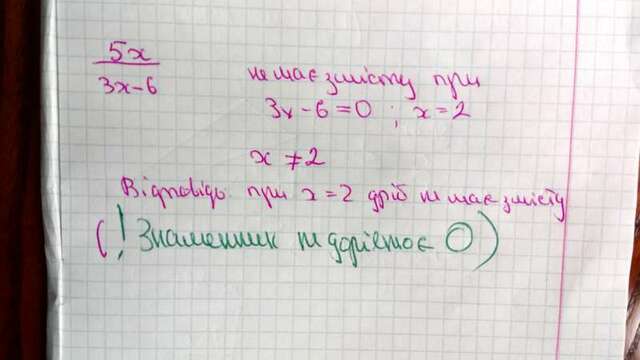 5x / 3x-6 не має змісту при
3x-6=0 ; x=2
x ≠ 2
Відповідь: при x=2 дріб не має змісту
(! Знаменник не дорівнює 0)